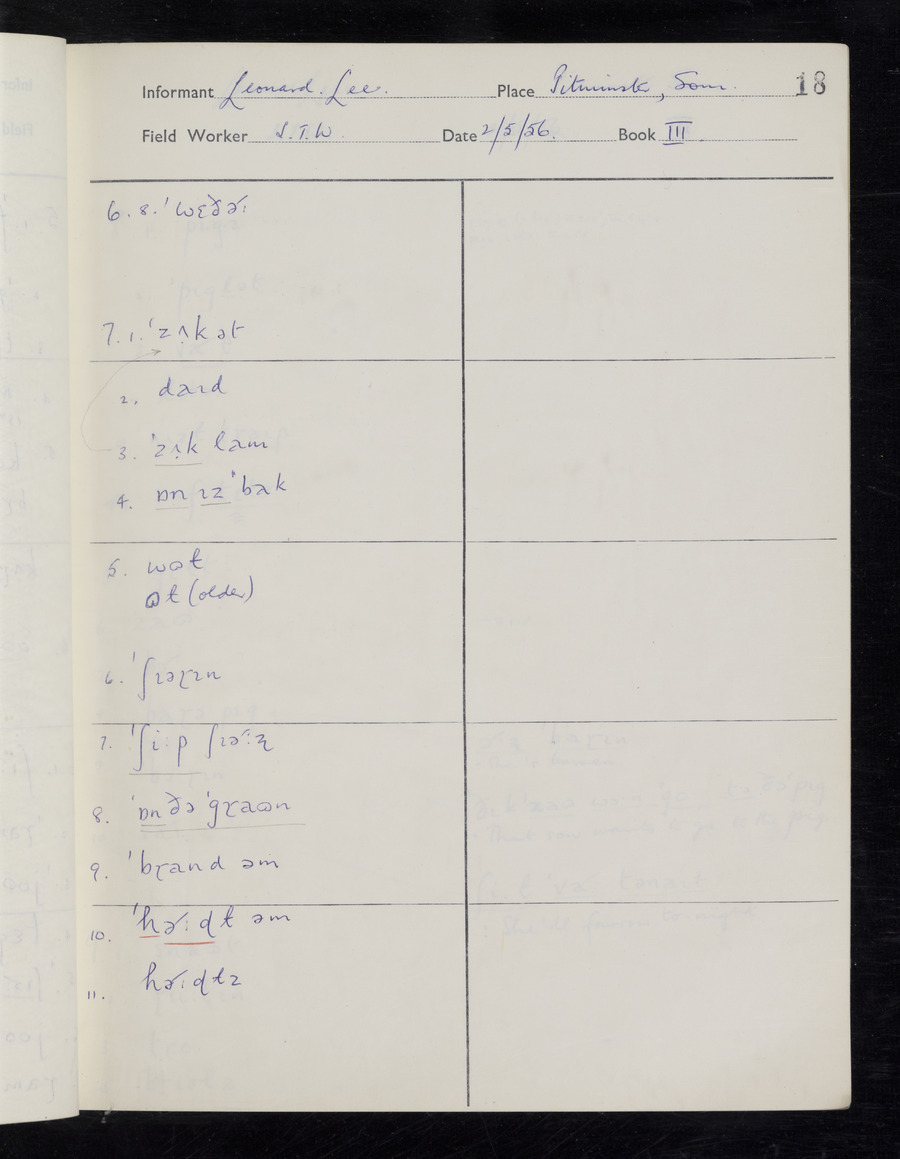 Informant Leonard. Lee. Place Pitminster, Som. 18
Field Worker S.T.W. Date 2/5/56. Book III
6. 8. 'wɛðɚ:
7. 1. 'zʌkət
2. daɪd
3. 'zʌk lam
4. ɒn ɪz 'bak
5. wɒt
ɒt (older)
6. 'ʃɪəɽɪn
7. 'ʃi:p ʃɪə:ɽ
8. 'ɒn ðə 'gɽaʊn
9. 'bɽand əm
10. 'hɚ:dt əm
11. hɚ:dtz